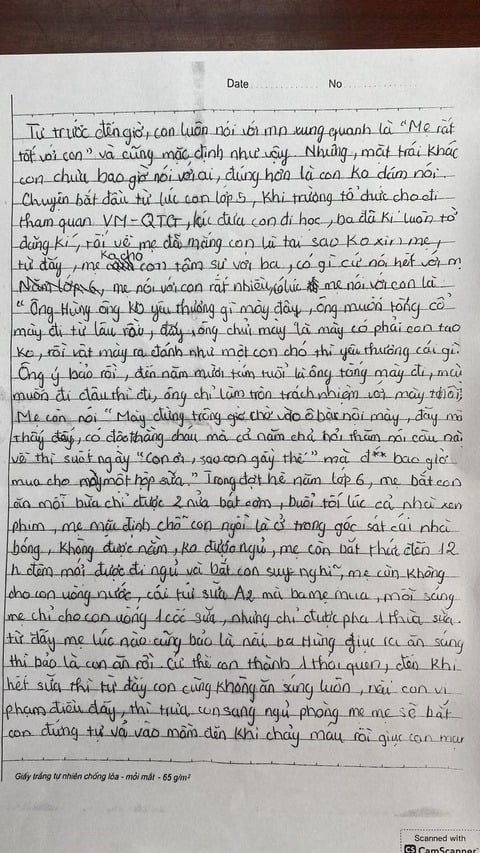 Date No
Từ trước đến giờ, con luôn nói với mn xung quanh là "Mẹ rất
tốt với con" và cũng mặc định như vậy. Nhưng, mặt trái khác
con chưa bao giờ nói với ai, đúng hơn là con ko dám nói
Chuyện bắt đầu từ lúc con lớp 5, khi trường tổ chức cho đi
tham quan VM-QTG, lúc đưa con đi học, ba đã kí luôn tờ
đăng kí, rồi về mẹ đã mắng con là tại sao ko xin mẹ,
từ đấy, mẹ ko cho con tâm sự với ba, có gì cứ nói hết với m
Năm lớp 6, mẹ nói với con rất nhiều, mẹ nói với con là
"Ông Hùng ông ko yêu thương gì mày đây, ông muốn tống cổ
mày đi từ lâu rồi, đấy, ông chửi mày là mày có phải con tao
ko, rồi vật mày ra đánh như một con chó thì yêu thương cái gì.
Ông ý bảo rồi, đến năm mười tám tuổi là ông tống mày đi, mày
muốn đi đâu thì đi, ông chỉ làm tròn trách nhiệm với mày thôi"
Mẹ còn nói "Mày đừng trông giờ chờ vào ô bà nội mày, đấy m
thấy đấy, có đứa thằng cháu mà cả năm chả hỏi thăm nói câu nào
về thì suốt ngày "con ơi, sao con gầy thế" mà đ** bao giờ
mua cho mày một hộp sữa." Trong đợt hè năm lớp 6, mẹ bắt con
ăn mỗi bữa chỉ được 2 nửa bát cơm, buổi tối lúc cả nhà xem
phim, mẹ mặc định chỗ con ngồi là ở trong góc sát cái nhà
bóng, không được nằm, ko được ngủ, mẹ còn bắt thức đến 12
h đêm mới được đi ngủ và bắt con suy nghĩ, mẹ còn không
cho con uống nước, cái túi sữa A2 mà ba mẹ mua, mỗi sáng
mẹ chỉ cho con uống 1 cốc sữa, nhưng chỉ được pha 1 thìa sữa.
từ đấy mẹ lúc nào cũng bảo là nếu ba Hùng giục ra ăn sáng
thì bảo là con ăn rồi. Cứ thế con thành 1 thói quen, đến khi
hết sữa thì từ đấy con cũng không ăn sáng luôn, nếu con vi
phạm điều đấy, thì trưa con sang ngủ phòng mẹ mẹ sẽ bắt
con đứng tự vả vào mồm đến khi chảy máu rồi giục con mau
Giấy trắng tự nhiên chống lóa - mỏi mắt - 65 g/m²
Scanned with
CS CamScanner